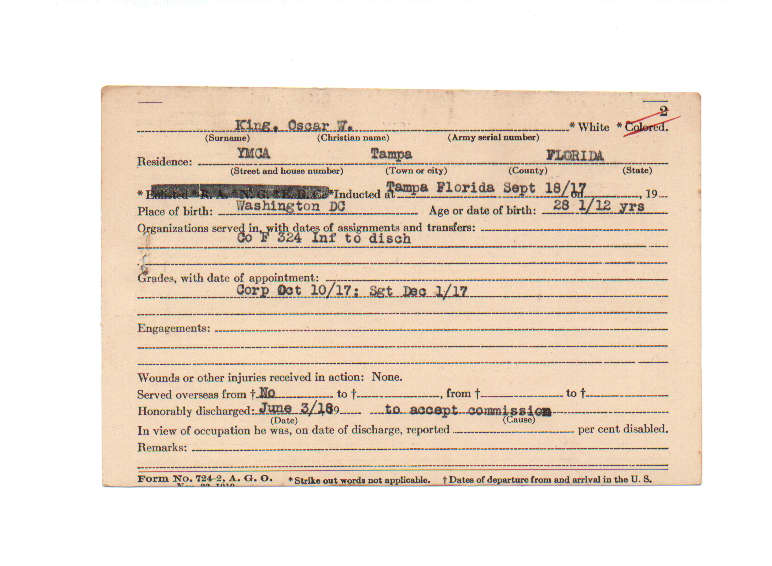 2
King, Oscar W. * White * Colored.
(Surname) (Christian name) (Army serial number)
Residence: YMCA Tampa FLORIDA
(Street and house number) (Town or city) (County) (State)
* Enlisted * R. A. * N. G. * E. R. C. * Inducted at Tampa Florida Sept 18/17 on 19
Place of birth: Washington DC Age or date of birth: 28 1/12 yrs
Organizations served in, with dates of assignments and transfers:
Co F 324 Inf to disch
Grades, with date of appointment:
Corp Oct 10/17; Sgt Dec 1/17
Engagements:
Wounds or other injuries received in action: None.
Served overseas from † No to †, from † to †
Honorably discharged: June 3/18 9 to accept commission
(Date) (Cause)
In view of occupation he was, on date of discharge, reported per cent disabled.
Remarks:
Form No. 724-2, A. G. O. * Strike out words not applicable. † Dates of departure from and arrival in the U. S.